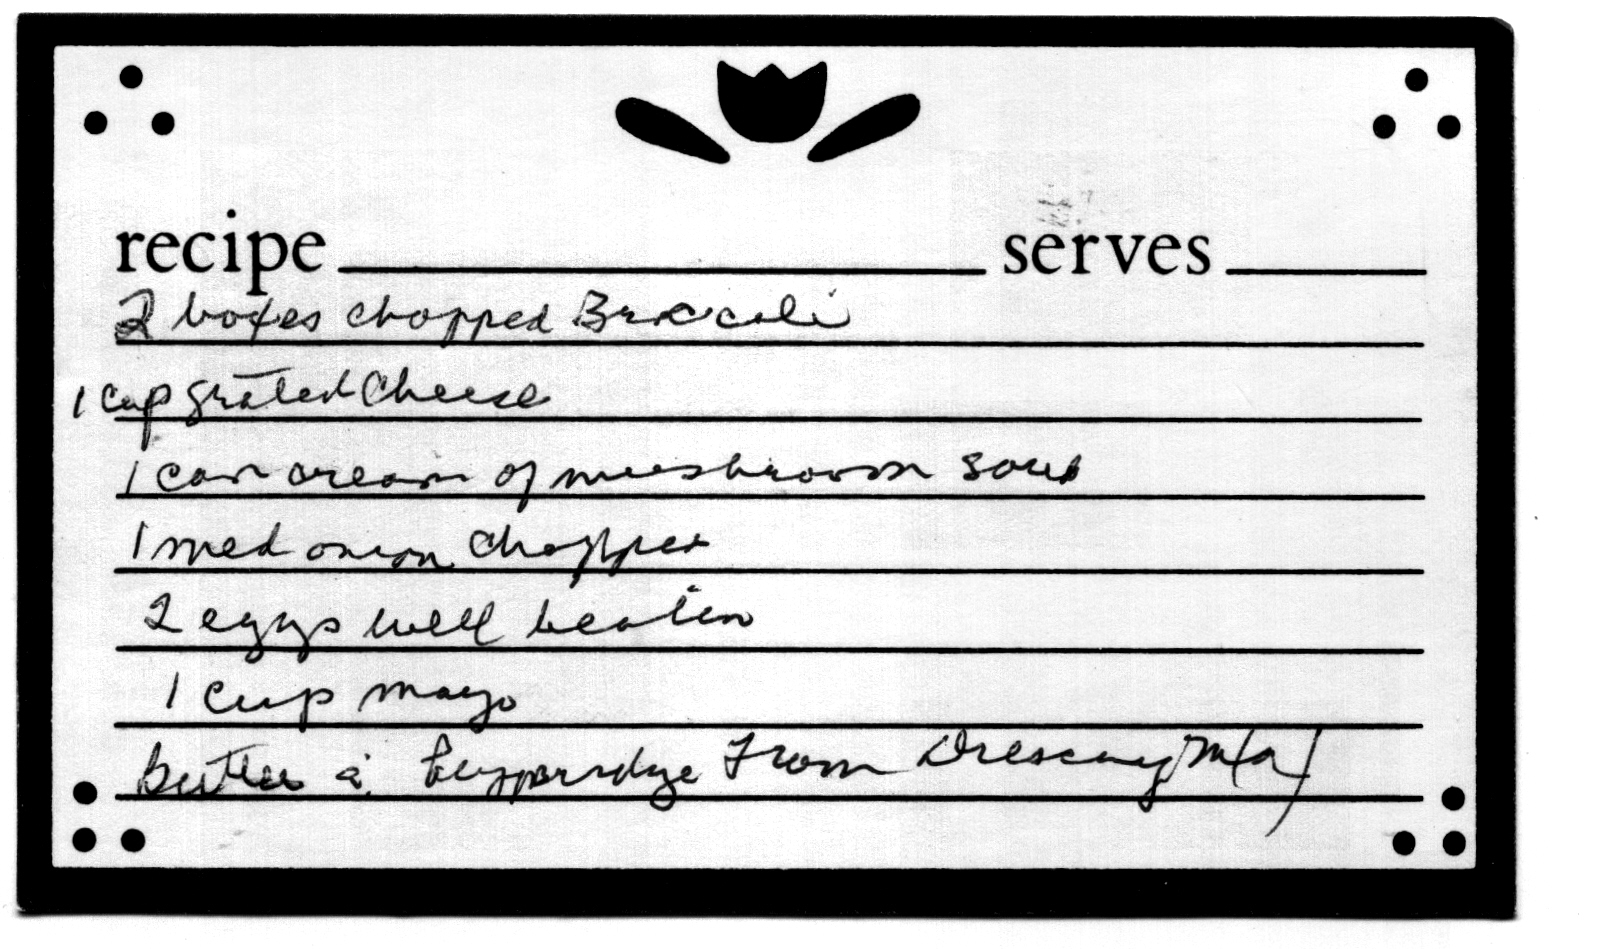 recipe serves
2 boxes chopped Broccoli
1 cup grated Cheese
1 can cream of mushroom soup
1 med onion chopped
2 eggs well beaten
1 cup mayo
butter & From